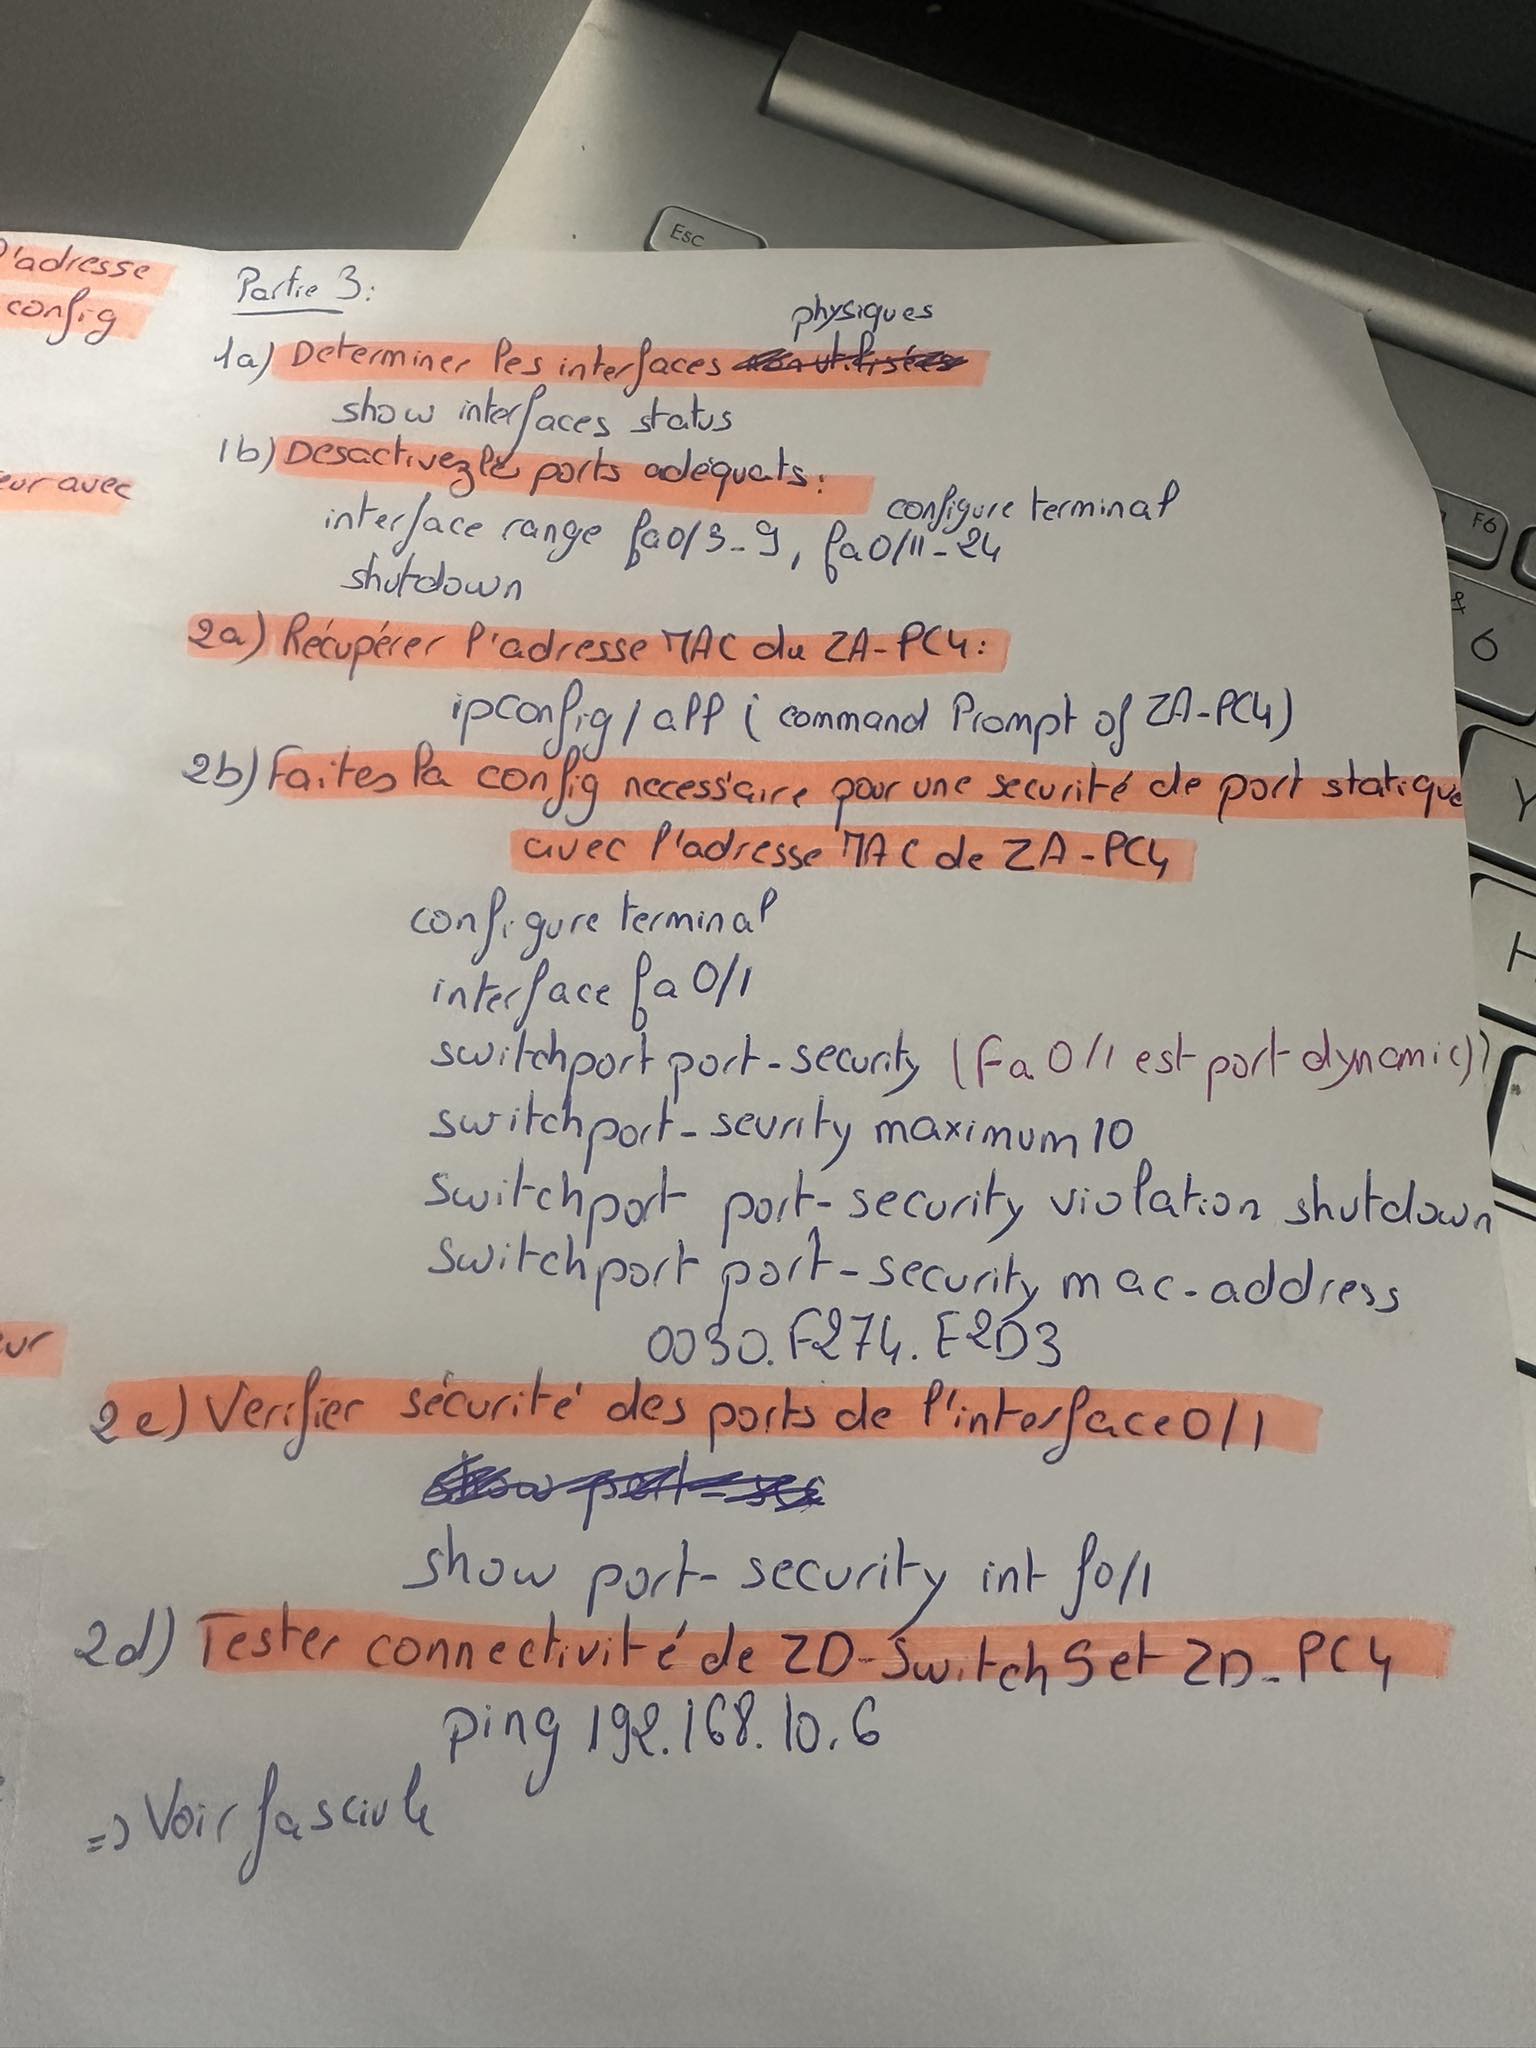 d'adresse
config
eur avec
eur
Partie 3:
physiques
1a) Determiner les interfaces
show interfaces status
1b) Desactivez le ports adéquats:
configure terminal
interface range fa0/3-9, fa0/11-24
shutdown
2a) Récupérer l'adresse MAC du ZA-PC4:
ipconfig/all (command Prompt of ZA-PC4)
2b) Faites la config necessaire pour une securité de port statique
avec l'adresse MAC de ZA-PC4
configure terminal
interface fa0/1
switchport port-security (Fa0/1 est port dynamic))
switchport-sevurity maximum 10
switchport port-security violation shutdown
switchport port-security mac-address
0030.F274.E2D3
2c) Verifier sécurité des ports de l'interface 0/1
show port-security int f0/1
2d) Tester connectivité de ZD-SwitchS et ZD-PC4
ping 192.168.10.6
=> Voir fascicule
Esc
F6
&
6
Y